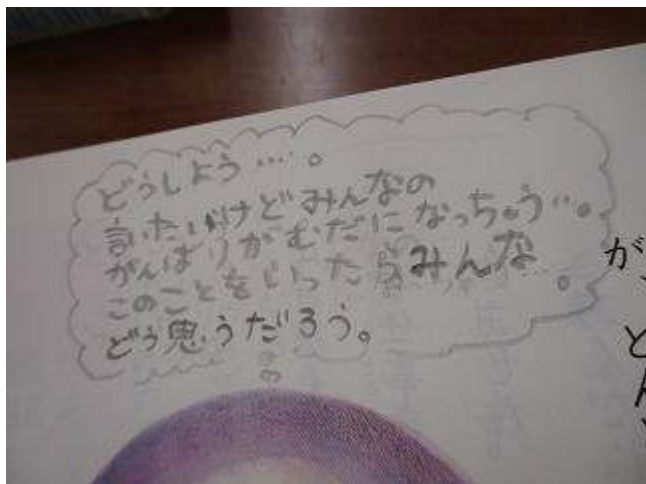 どうしよう…。
言いたいけどみんなの
がんばりがむだになっちゃう…。
このことをいったらみんな
どう思うだろう。
が、
とん